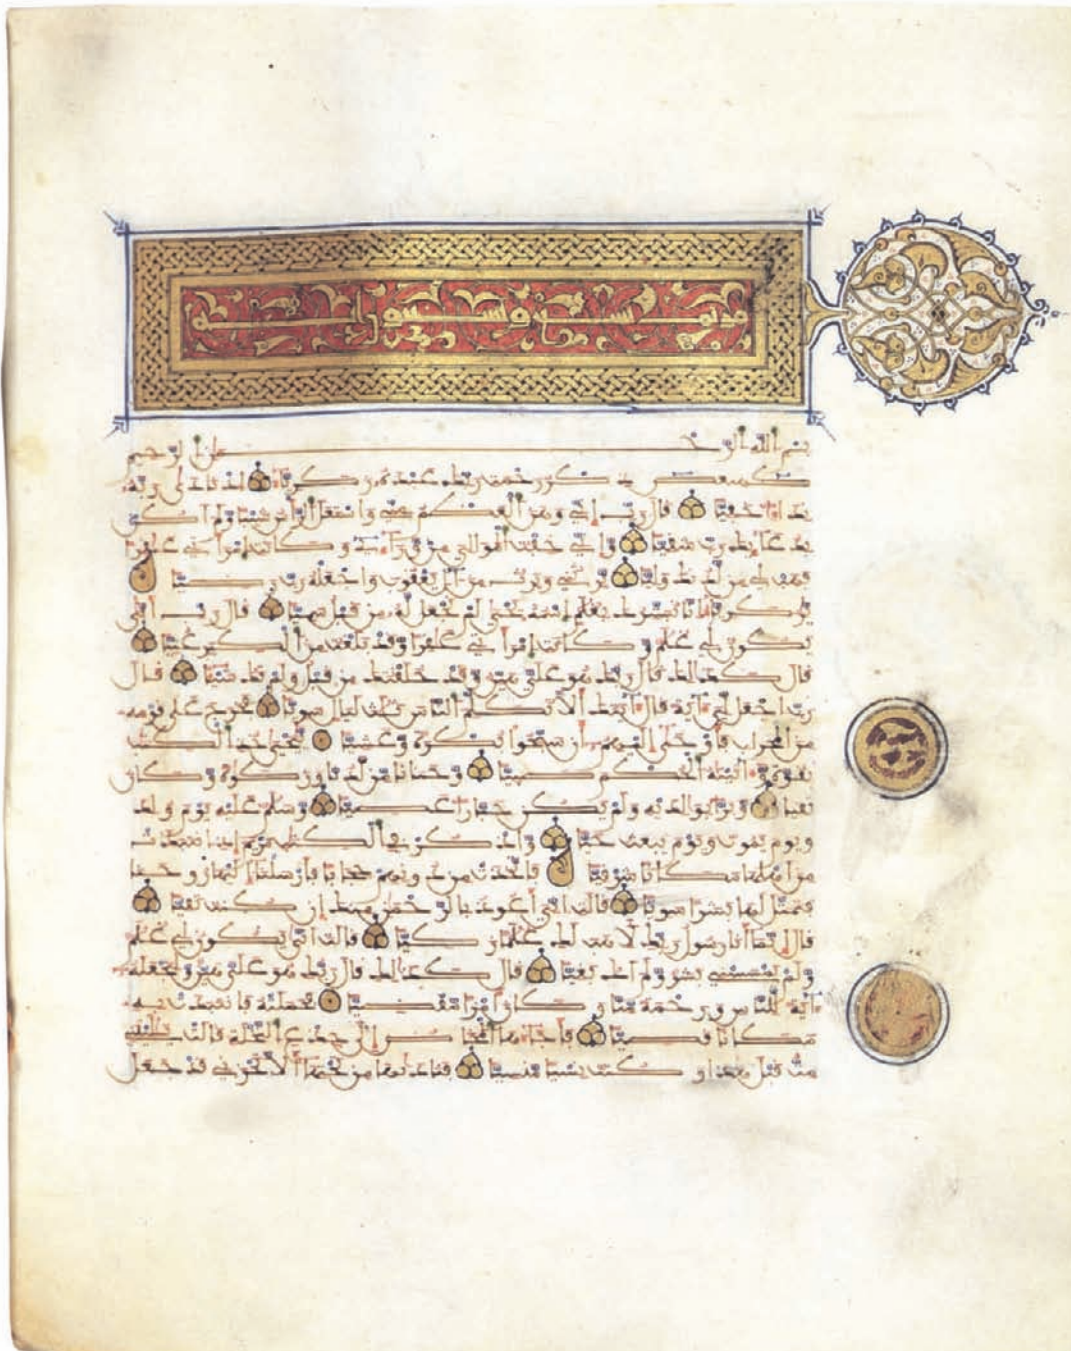 بسم الله الرحمن الرحيم
كهيعص ذكر رحمت ربك عبده زكرياء إذ نادى ربه
نداء خفيا قال رب إني وهن العظم مني واشتعل الرأس شيبا ولم أكن
بدعائك رب شقيا وإني خفت الموالي من وراءي وكانت امرأتي عاقرا
فهب لي من لدنك وليا يرثني ويرث من ءال يعقوب واجعله رب رضيا
يزكرياء إنا نبشرك بغلم اسمه يحيى لم نجعل له من قبل سميا قال رب أنى
يكون لي غلم وكانت امرأتي عاقرا وقد بلغت من الكبر عتيا
قال كذلك قال ربك هو علي هين وقد خلقتك من قبل ولم تك شيئا قال
رب اجعل لي ءاية قال ءايتك ألا تكلم الناس ثلث ليال سويا فخرج على قومه
من المحراب فأوحى إليهم أن سبحوا بكرة وعشيا ييحيى خذ الكتب
بقوة وءاتينه الحكم صبيا وحنانا من لدنا وزكوة وكان
تقيا وبرا بوالديه ولم يكن جبارا عصيا وسلم عليه يوم ولد
ويوم يموت ويوم يبعث حيا واذكر في الكتب مريم إذ انتبذت
من أهلها مكانا شرقيا فاتخذت من دونهم حجابا فأرسلنا إليها روحنا
فتمثل لها بشرا سويا قالت إني أعوذ بالرحمن منك إن كنت تقيا
قال إنما أنا رسول ربك لأهب لك غلما زكيا قالت أنى يكون لي غلم
ولم يمسسني بشر ولم أك بغيا قال كذلك قال ربك هو علي هين ولنجعله
ءاية للناس ورحمة منا وكان أمرا مقضيا فحملته فانتبذت به
مكانا قصيا فأجاءها المخاض إلى جذع النخلة قالت يليتني
مت قبل هذا وكنت نسيا منسيا فناديها من تحتها ألا تحزني قد جعل